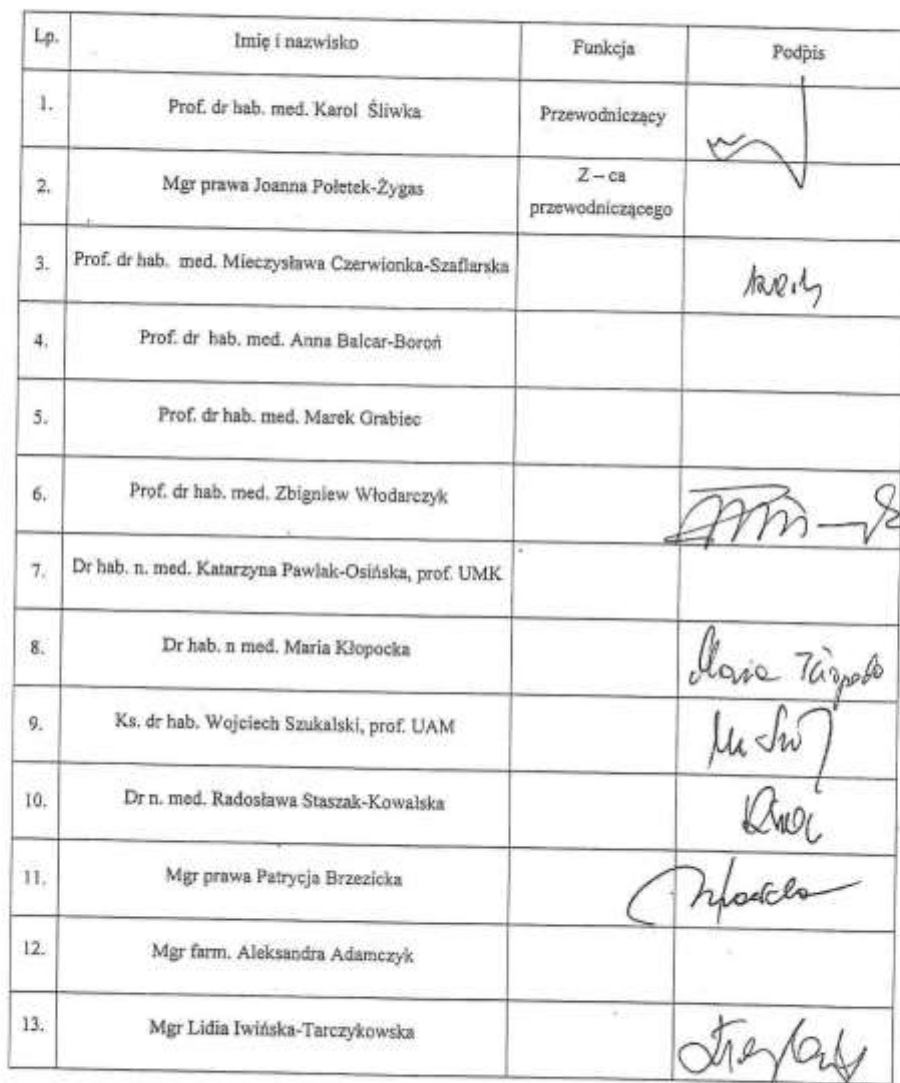 Lp. Imię i nazwisko Funkcja Podpis
1. Prof. dr hab. med. Karol Śliwka Przewodniczący
2. Mgr prawa Joanna Połetek-Żygas Z – ca
przewodniczącego
3. Prof. dr hab. med. Mieczysława Czerwionka-Szaflarska
4. Prof. dr hab. med. Anna Balcar-Boroń
5. Prof. dr hab. med. Marek Grabiec
6. Prof. dr hab. med. Zbigniew Włodarczyk
7. Dr hab. n. med. Katarzyna Pawlak-Osińska, prof. UMK
8. Dr hab. n med. Maria Kłopocka Maria
9. Ks. dr hab. Wojciech Szukalski, prof. UAM
10. Dr n. med. Radosława Staszak-Kowalska
11. Mgr prawa Patrycja Brzezicka
12. Mgr farm. Aleksandra Adamczyk
13. Mgr Lidia Iwińska-Tarczykowska